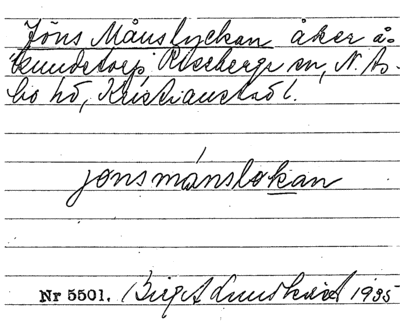 Jöns Månslyckan åker å
Knutstorp Riseberga sn, N. Ås-
bo hd, Kristianstad l.
jonsmánslokan
Nr 5501. Birgit Lundkvist 1935